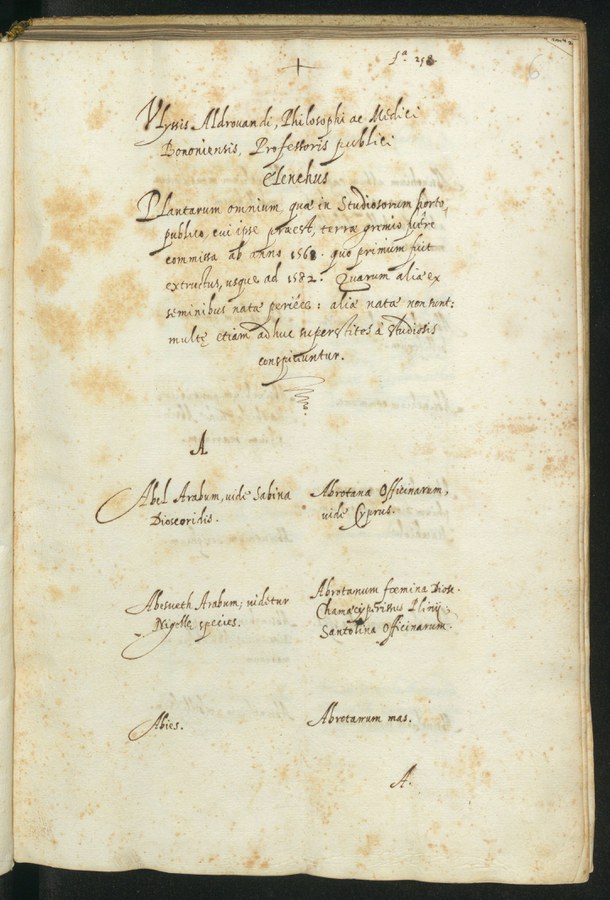 fa 258
6
Vlyssis Aldrouandi, Philosophi ac Medici
Bononiensis, Professoris publici
Elenchus
Plantarum omnium, quæ in Studiosorum horto,
publico, cui ipse præest, terræ gremio fuêre
commissa ab anno 1568. quo primum fuit
extructus, usque ad 1582. Quarum aliæ ex
seminibus natæ periére: aliæ natæ non sunt:
multę etiam adhuc superstites à studiosis
conspiciuntur.
A
Abel Arabum, uide Sabina
Dioscoridis.
Abesueth Arabum; uidetur
Nigellę species.
Abies.
Abrotana Officinarum,
uide Cyprus.
Abrotanum fœmina Diosc.
Chamæcyperissus Plinij;
Santolina Officinarum.
Abrotanum mas.
A.